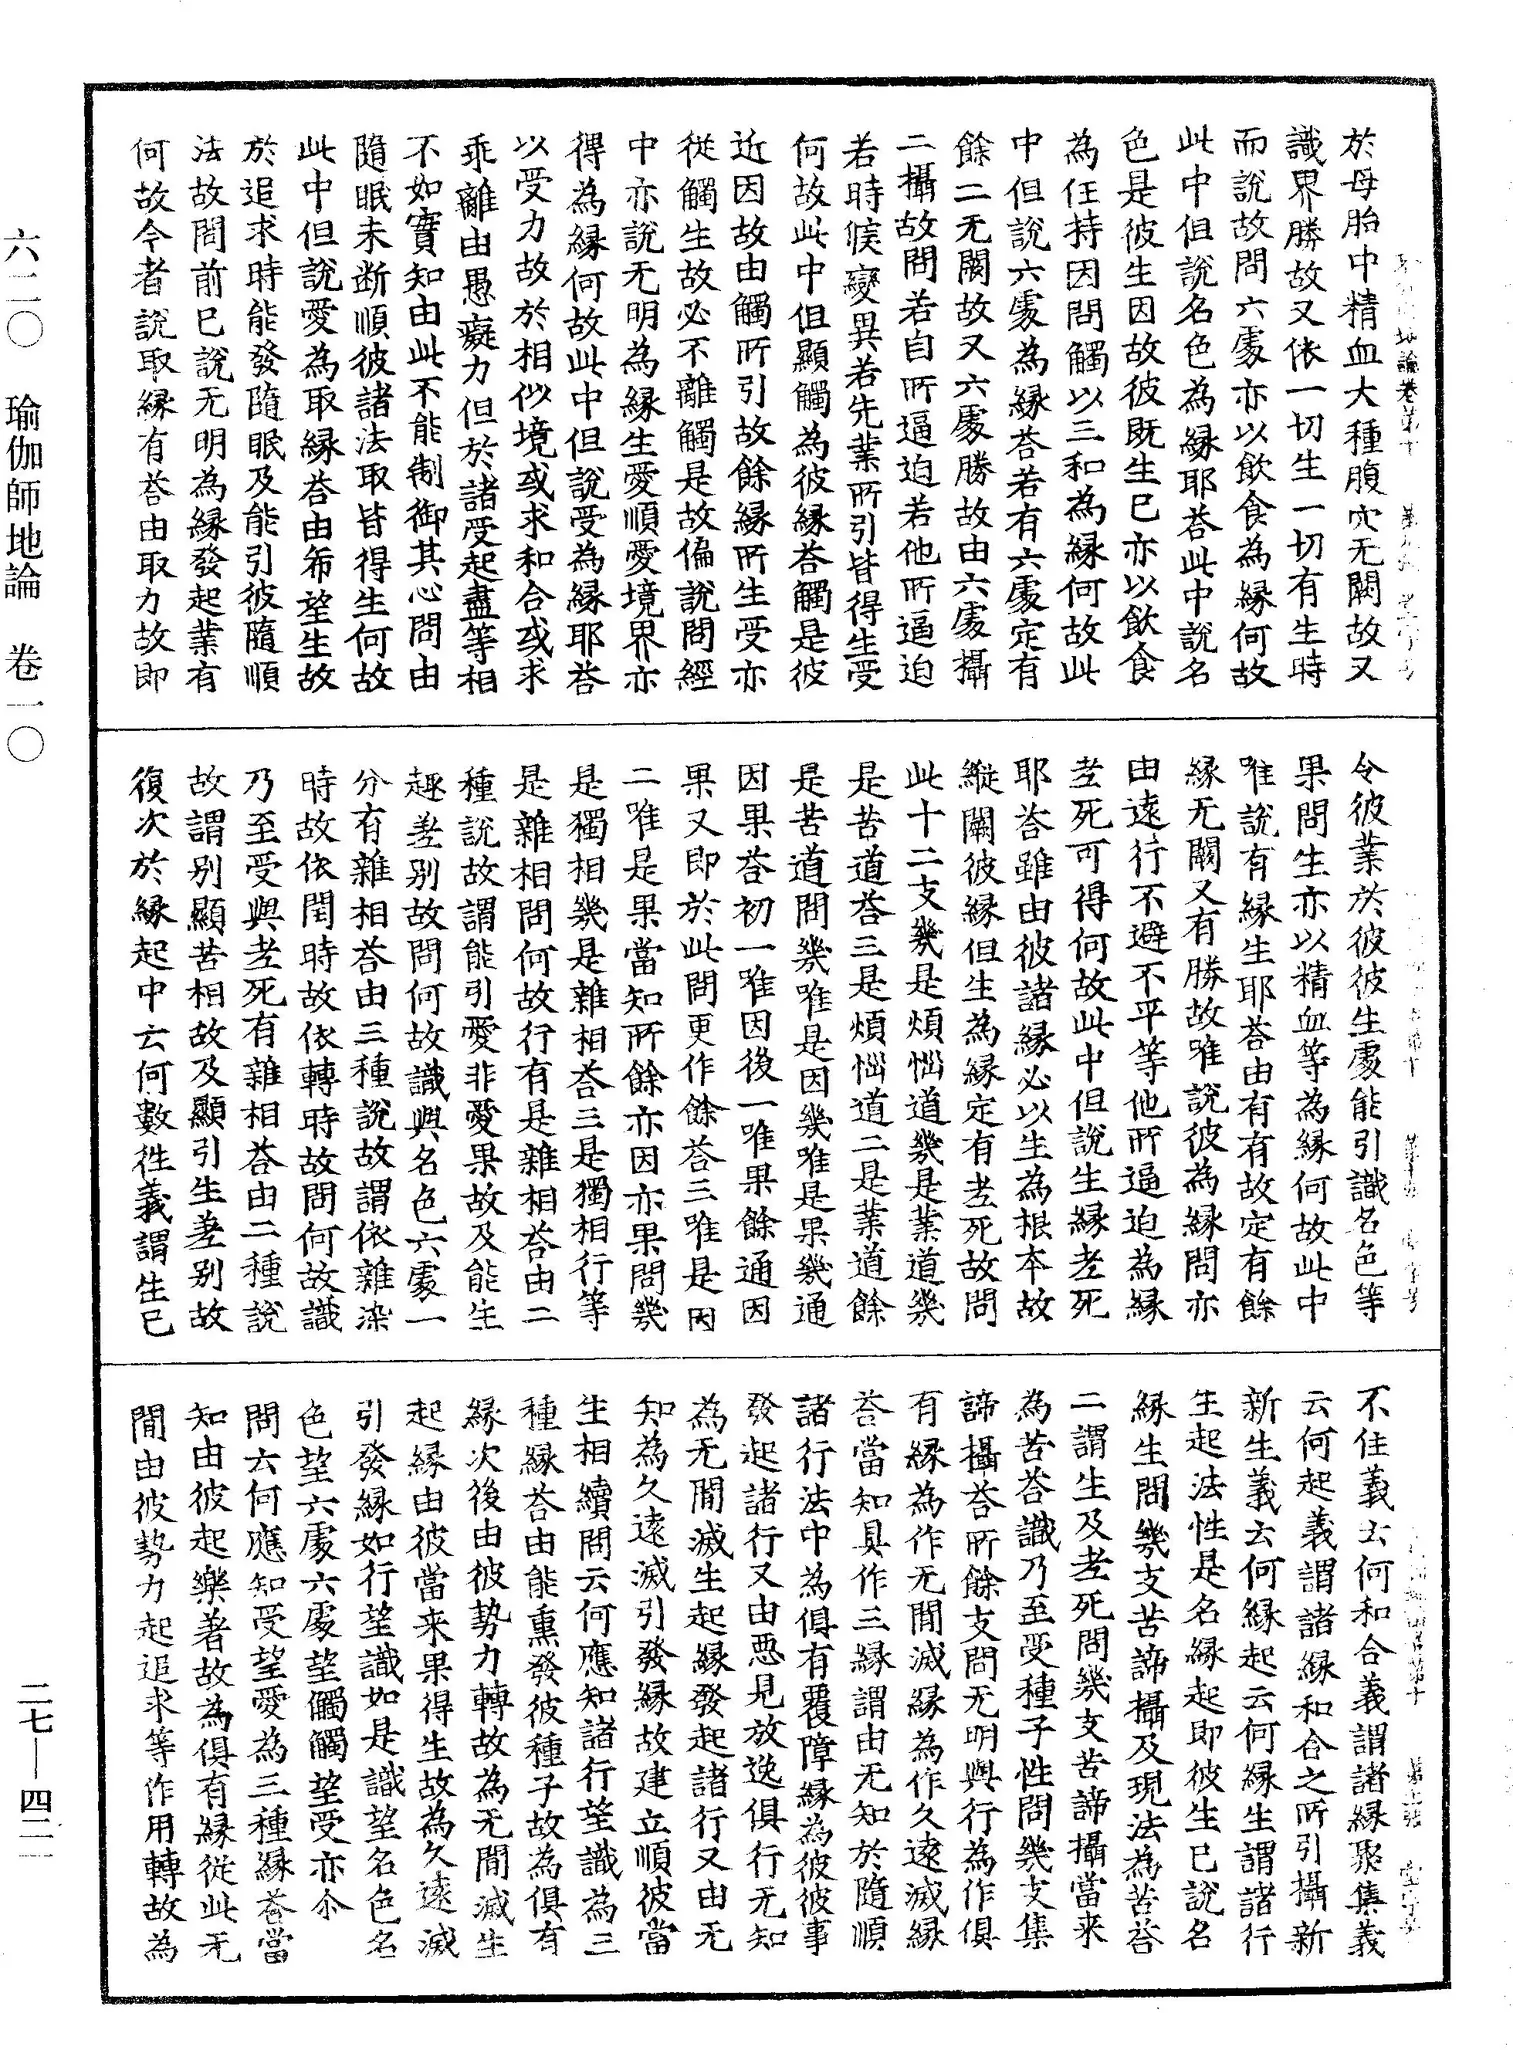 於母胎中精血大種腹穴无闕故又
識界勝故又依一切生一切有生時
而說故問六處亦以飲食為緣何故
此中但說名色為緣耶荅此中說名
色是彼生因故彼既生已亦以飲食
為任持因問觸以三和為緣何故此
中但說六處為緣荅若有六處定有
餘二无闕故又六處勝故由六處攝
二攝故問若自所逼迫若他所逼迫
若時候變異若先業所引皆得生受
何故此中但顯觸為彼緣荅觸是彼
近因故由觸所引故餘緣所生受亦
從觸生故必不離觸是故偏說問經
中亦說无明為緣生愛順愛境界亦
得為緣何故此中但說受為緣耶荅
以受力故於相似境或求和合或求
乖離由愚癡力但於諸受起盡等相
不如實知由此不能制御其心問由
隨眠未断順彼諸法取皆得生何故
此中但說愛為取緣荅由希望生故
於追求時能發隨眠及能引彼隨順
法故問前已說无明為緣發起業有
何故今者說取緣有荅由取力故即
令彼業於彼彼生處能引識名色等
果問生亦以精血等為緣何故此中
唯說有緣生耶荅由有有故定有餘
緣无闕又有勝故唯說彼為緣問亦
由遠行不避不平等他所逼迫為緣
老死可得何故此中但說生緣老死
耶荅雖由彼諸緣必以生為根本故
縱闕彼緣但生為緣定有老死故問
此十二支幾是煩惱道幾是業道幾
是苦道荅三是煩惱道二是業道餘
是苦道問幾唯是因幾唯是果幾通
因果荅初一唯因後一唯果餘通因
果又即於此問更作餘荅三唯是因
二唯是果當知所餘亦因亦果問幾
是獨相幾是雜相荅三是獨相行等
是雜相問何故行有是雜相荅由二
種說故謂能引愛非愛果故及能生
趣差別故問何故識與名色六處一
分有雜相荅由三種說故謂依雜染
時故依閏時故依轉時故問何故識
乃至受與老死有雜相荅由二種說
故謂別顯苦相故及顯引生差別故
復次於緣起中云何數往義謂生已
不住義云何和合義謂諸緣聚集義
云何起義謂諸緣和合之所引攝新
新生義云何緣起云何緣生謂諸行
生起法性是名緣起即彼生已說名
緣生問幾支苦諦攝及現法為苦荅
二謂生及老死問幾支苦諦攝當来
為苦荅識乃至受種子性問幾支集
諦攝荅所餘支問无明與行為作俱
有緣為作无間滅緣為作久遠滅緣
荅當知具作三緣謂由无知於隨順
諸行法中為俱有覆障緣為彼彼事
發起諸行又由惡見放逸俱行无知
為无間滅生起緣發起諸行又由无
知為久遠滅引發緣故建立順彼當
生相續問云何應知諸行望識為三
種緣荅由能熏發彼種子故為俱有
緣次後由彼勢力轉故為无間滅生
起緣由彼當来果得生故為久遠滅
引發緣如行望識如是識望名色名
色望六處六處望觸觸望受亦尒
問云何應知受望愛為三種緣荅當
知由彼起樂著故為俱有緣從此无
間由彼勢力起追求等作用轉故為
六二〇　瑜伽師地論　卷一〇
二七—四二一